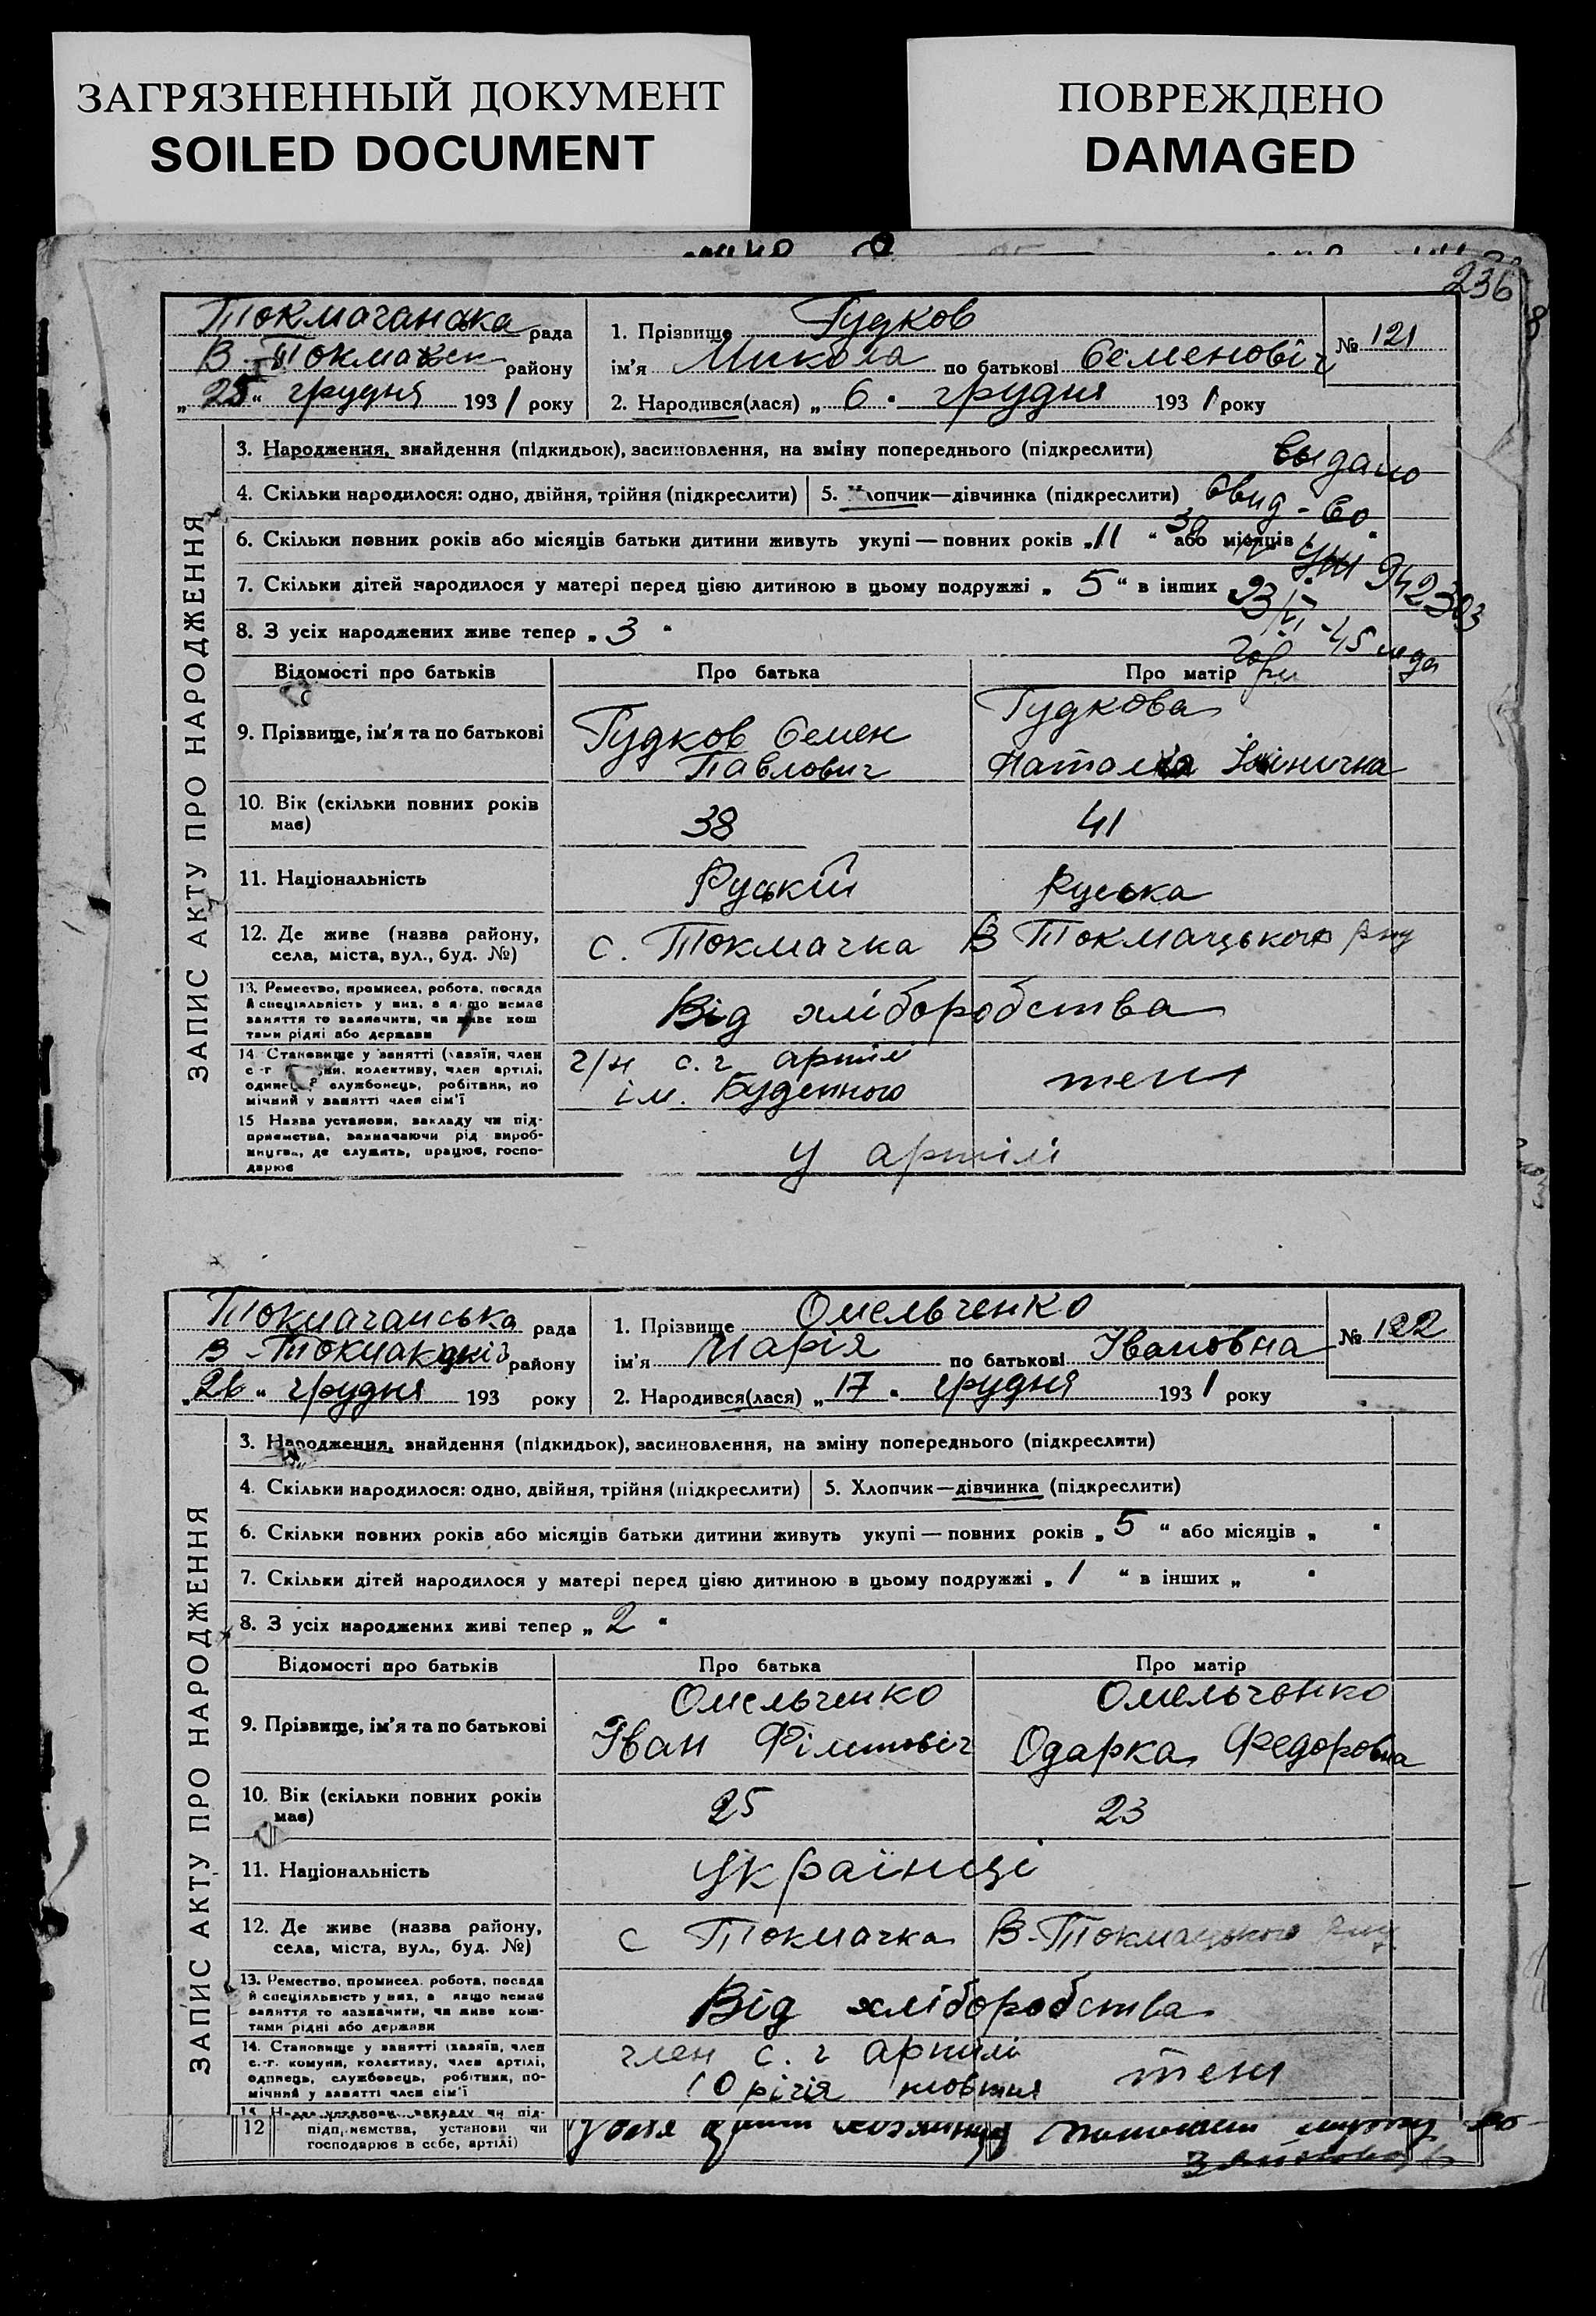 ЗАГРЯЗНЕННЫЙ ДОКУМЕНТ
SOILED DOCUMENT
ПОВРЕЖДЕНО
DAMAGED
236
Токмачанська рада
В-Токмакск району
„25“ грудня 1931 року
1. Прізвище Гудков
ім'я Микола по батькові Семеновіч
№ 121
2. Народився(лася) „6“ грудня 1931 року
ЗАПИС АКТУ ПРО НАРОДЖЕННЯ
3. Народження, знайдення (підкидьок), засиновлення, на зміну попереднього (підкреслити)
выдано
4. Скільки народилося: одно, двійня, трійня (підкреслити)
5. Хлопчик—дівчинка (підкреслити)
свид-во
6. Скільки повних років або місяців батьки дитини живуть укупі — повних років „11“ або місяців
за № 942303
7. Скільки дітей народилося у матері перед цією дитиною в цьому подружжі „5“ в інших
23/VI-45
8. З усіх народжених живе тепер „3“
Відомості про батьків
Про батька
Про матір
9. Прізвище, ім'я та по батькові
Гудков Семен
Павлович
Гудкова
Наталка
10. Вік (скільки повних років
має)
38
41
11. Національність
Руський
Руська
12. Де живе (назва району,
села, міста, вул., буд. №)
с. Токмачка В Токмацького р-ну
13. Ремество, промисел, робота, посада
й спеціяльність у них, а якщо немає
заняття то зазначити, чи живе кош
тами рідні або держави
Від хліборобства
14 Становище у занятті (хазяїн, член
с.-г. комуни, колективу, член артілі,
одинець, службовець, робітник, по
мічний у занятті член сім'ї
ч/н с. г артілі
ім. Буденного
теж
15 Назва установи, закладу чи під-
приємства, зазначаючи рід вироб-
ництва, де служить, працює, госпо-
дарює
у артілі
Токмачанська рада
В-Токмакский району
„26“ грудня 193 року
1. Прізвище Омельченко
ім'я Марія по батькові Івановна
№ 122
2. Народився(лася) „17“ грудня 1931 року
ЗАПИС АКТУ ПРО НАРОДЖЕННЯ
3. Народження, знайдення (підкидьок), засиновлення, на зміну попереднього (підкреслити)
4. Скільки народилося: одно, двійня, трійня (підкреслити)
5. Хлопчик—дівчинка (підкреслити)
6. Скільки повних років або місяців батьки дитини живуть укупі — повних років „5“ або місяців „ “
7. Скільки дітей народилося у матері перед цією дитиною в цьому подружжі „1“ в інших „ “
8. З усіх народжених живі тепер „2“
Відомості про батьків
Про батька
Про матір
9. Прізвище, ім'я та по батькові
Омельченко
Іван
Омельченко
Одарка Федоровна
10. Вік (скільки повних років
має)
25
23
11. Національність
Українці
12. Де живе (назва району,
села, міста, вул., буд. №)
с Токмачка В-Токмацького р-ну
13. Ремество, промисел, робота, посада
й спеціяльність у них, а якщо немає
заняття то зазначити, чи живе кош-
тами рідні або держави
Від хліборобства
14. Становище у занятті (хазяїн, член
с.-г. комуни, колективу, член артілі,
одинець, службовець, робітник, по-
мічний у занятті член сім'ї
член с. г артілі
10 річія жовтня
теж
12
підприємства, установи чи
господарює в себе, артілі)